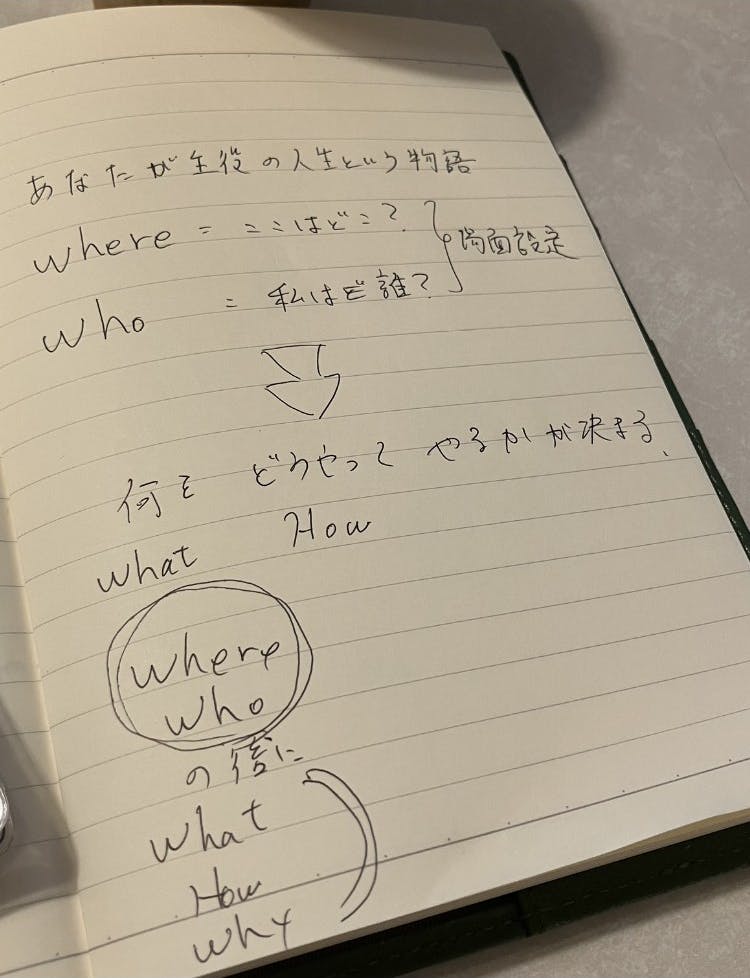 あなたが主役の人生という物語
where = ここはどこ? 場面設定
who = 私はど誰?
何を どうやって やるかが決まる、
what How
where
who
の後に
what
How
why